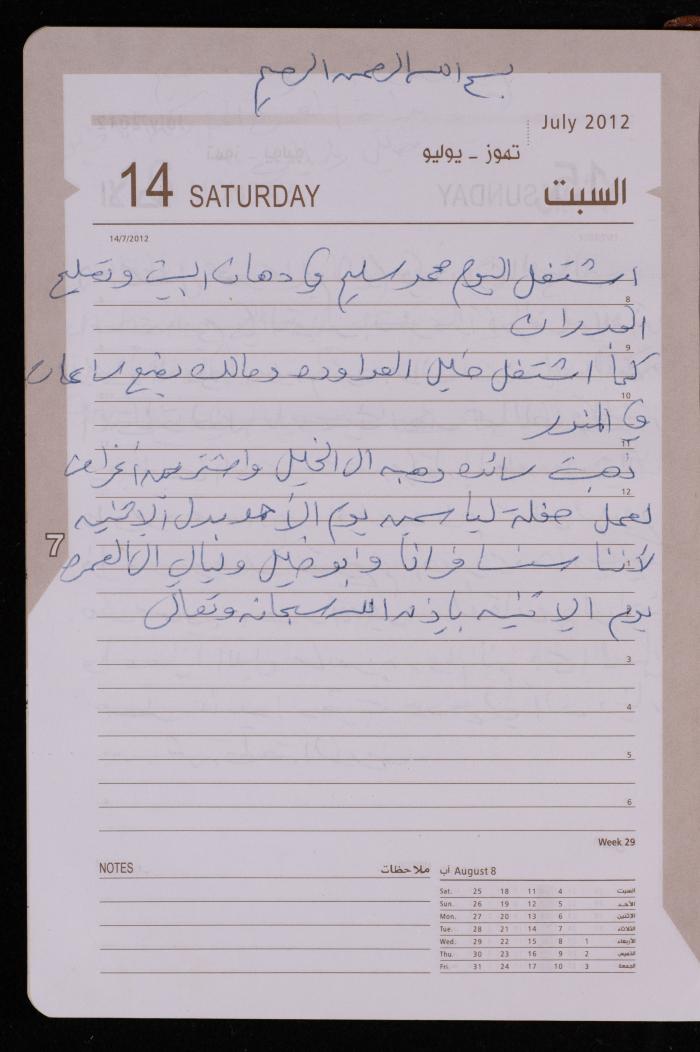 بسم الله الرحمن الرحيم
July 2012
تموز - يوليو
14 SATURDAY
السبت
14/7/2012
اشتغل اليوم محمد سليم في دهان البيت وتصليح
8
الجدران
9
كما اشتغل خليل العداوده ومالك بضع ساعات
10
في
11
ذهبت سائده وهبه الى الخليل واشترين أغراض
12
لعمل حفلة لياسمين يوم الأحد بدل الاثنين
7
لأننا سنسافر انا وابو خليل ونيال الى العمره
يوم الاثنين بإذن الله سبحانه وتعالى
3
4
5
6
Week 29
NOTES ملاحظات
آب August 8
Sat. 25 18 11 4 السبت
Sun. 26 19 12 5 الأحد
Mon. 27 20 13 6 الاثنين
Tue. 28 21 14 7 الثلاثاء
Wed. 29 22 15 8 1 الأربعاء
Thu. 30 23 16 9 2 الخميس
Fri. 31 24 17 10 3 الجمعة